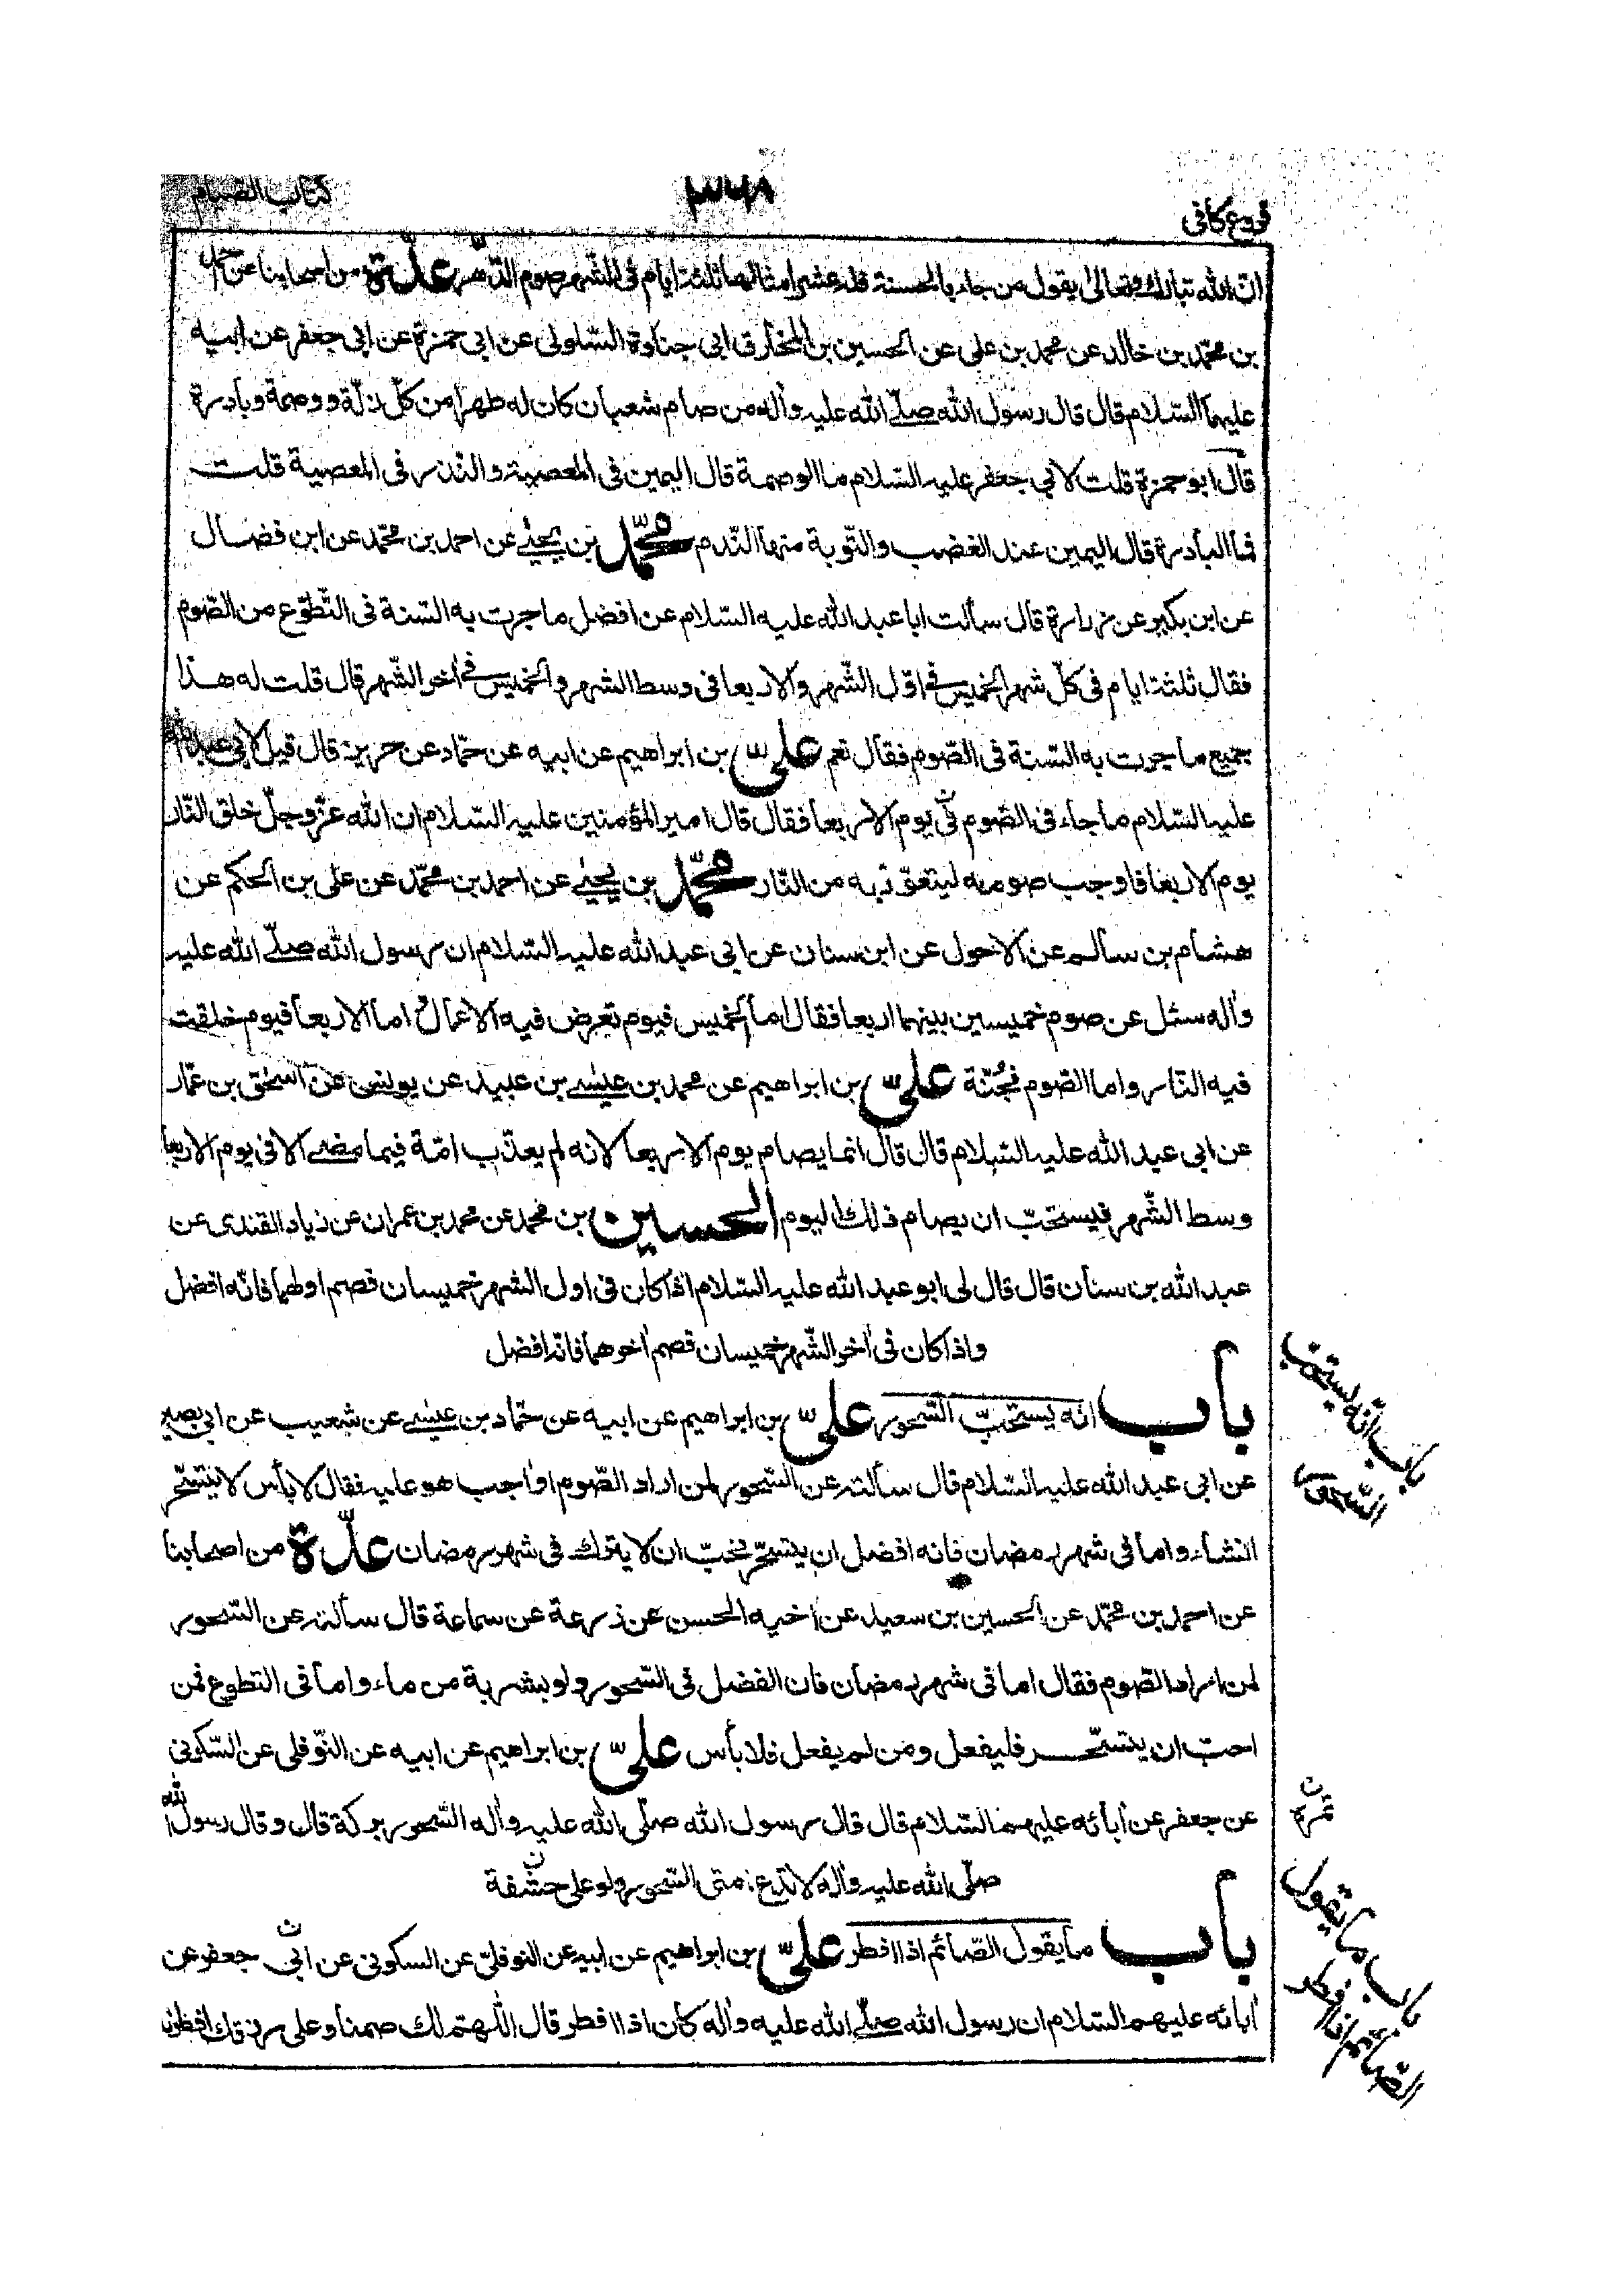 فروع كافى
٣٦٨
كتاب الصيام
ان الله تبارك وتعالى يقول من جاء بالحسنة فله عشر امثالها ثلثة ايام فى الشهر صوم الدّهر عدّة من اصحابنا عن احمد
بن محمّد بن خالد عن محمد بن على عن الحسين بن المخارق ابى جنادة السّلولى عن ابى حمزة عن ابى جعفر عن ابيه
عليهما السّلام قال قال رسول الله صلّى الله عليه وآله من صام شعبان كان له طهرا من كلّ زلّة ووصمة وبادرة
قال ابو حمزة قلت لابي جعفر عليه السّلام ما الوصمة قال اليمين فى المعصية والنّذر فى المعصية قلت
فما البادرة قال اليمين عند الغضب والتّوبة منها النّدم محمّد بن يحيى عن احمد بن محمّد عن ابن فضال
عن ابن بكير عن زرارة قال سألت ابا عبد الله عليه السّلام عن افضل ما جرت به السّنة فى التّطوّع من الصّوم
فقال ثلثة ايام فى كلّ شهر الخميس فى اوّل الشّهر والاربعا فى وسط الشهر والخميس فى اخر الشّهر قال قلت له هذا
جميع ما جرت به السّنة فى الصّوم فقال نعم علىّ بن ابراهيم عن ابيه عن حمّاد عن حريز قال قيل لابى عبد الله
عليه السّلام ما جاء فى الصّوم فى يوم الاربعا فقال قال امير المؤمنين عليه السّلام ان الله عزّ وجلّ خلق النّار
يوم الاربعا فاوجب صومه ليتعوّذ به من النّار محمّد بن يحيى عن احمد بن محمّد عن على بن الحكم عن
هشام بن سالم عن الاحول عن ابن سنان عن ابى عبد الله عليه السّلام ان رسول الله صلّى الله عليه
وآله سئل عن صوم خميسين بينهما اربعا فقال اما الخميس فيوم تعرض فيه الاعمال واما الاربعا فيوم خلقت
فيه النّار واما الصّوم فجُنّة علىّ بن ابراهيم عن محمد بن عيسى بن عبيد عن يونس عن اسحق بن عمّار
عن ابى عبد الله عليه السّلام قال قال انما يصام يوم الاربعا لانه لم يعذّب امّة فيما مضى الا فى يوم الاربعا
وسط الشّهر فيستحبّ ان يصام ذلك اليوم الحسين بن محمد عن محمد بن عمران عن زياد القندى عن
عبد الله بن سنان قال قال لى ابو عبد الله عليه السّلام اذا كان فى اول الشهر خميسان فصم اولهما فانّه افضل
واذا كان فى اخر الشّهر خميسان فصم اخرهما فانّه افضل
باب انّه يستحبّ السّحور علىّ بن ابراهيم عن ابيه عن حمّاد بن عيسى عن شعيب عن ابى بصير
باب انّه يستحب
السّحور
عن ابى عبد الله عليه السّلام قال سألته عن السّحور لمن اراد الصّوم اواجب هو عليه فقال لا بأس لا يتسحّر
ان شاء واما فى شهر رمضان فانه افضل ان يتسحّر نحبّ ان لا يترك فى شهر رمضان عدّة من اصحابنا
عن احمد بن محمّد عن الحسين بن سعيد عن اخيه الحسن عن زرعة عن سماعة قال سألته عن السّحور
لمن اراد الصّوم فقال اما فى شهر رمضان فان الفضل فى السّحور ولو بشربة من ماء واما فى التطوع فمن
احبّ ان يتسحّر فليفعل ومن لم يفعل فلا بأس علىّ بن ابراهيم عن ابيه عن النّوفلى عن السّكونى
عن جعفر عن أبائه عليهم السّلام قال قال رسول الله صلّى الله عليه وآله السّحور بركة قال وقال رسول الله
صلّى الله عليه وآله لا تدع امتى السّحور ولو على حشفة
باب ما يقول الصّائم اذا افطر علىّ بن ابراهيم عن ابيه عن النوفلىّ عن السكونى عن ابى جعفر عن
باب ما يقول
الصّائم اذا افطر
أبائه عليهم السّلام ان رسول الله صلّى الله عليه وآله كان اذا افطر قال اللّهمّ لك صمنا وعلى رزقك افطرنا